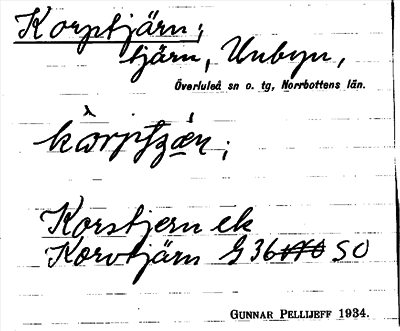 Korptjärn;
tjärn, Unbyn,
Överluleå sn o. tg, Norrbottens län.
Korstjern ek
Korvtjärn G 36 SO
GUNNAR PELLIJEFF 1934.